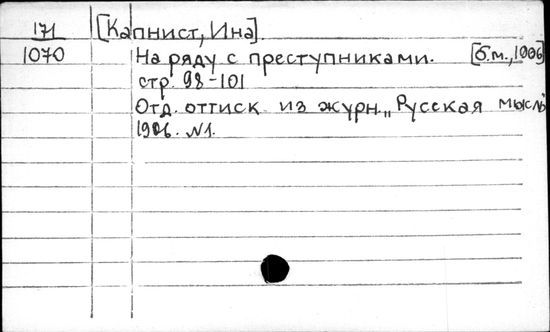 171 [Капнист, Ина]
1070 На ряду с преступниками. [б.м., 1906]
стр. 98-101
Отд. оттиск из журн. „Русская мысль"
1906. №1.